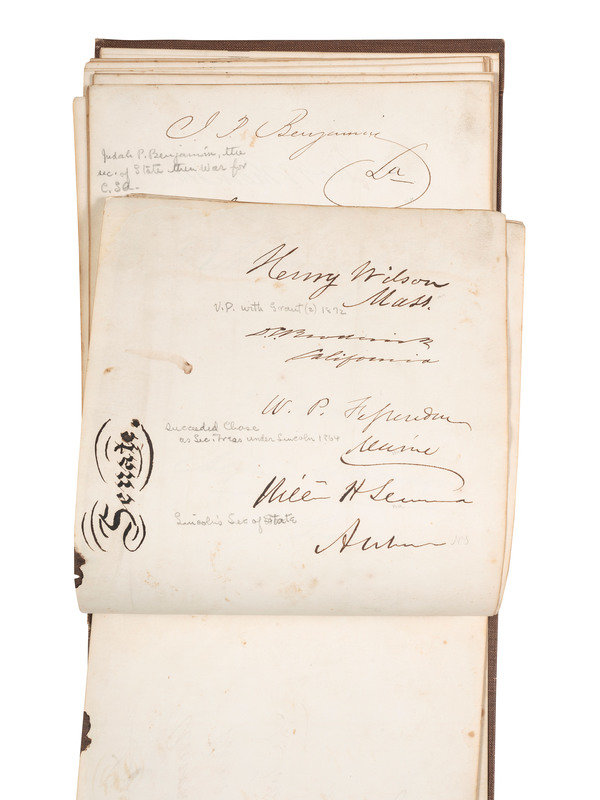 J. P. Benjamin
La
Judah P. Benjamin, the
sec. of State then War for
C.SA.
Henry Wilson
Mass.
V.P. with Grant (2) 1872
D. C. Broderick
California
W. P. Fessenden
Maine
Succeeded Chase
as Sec. Treas under Lincoln 1864
Senate.
Willm H Seward
Lincoln's Sec of State
Auburn